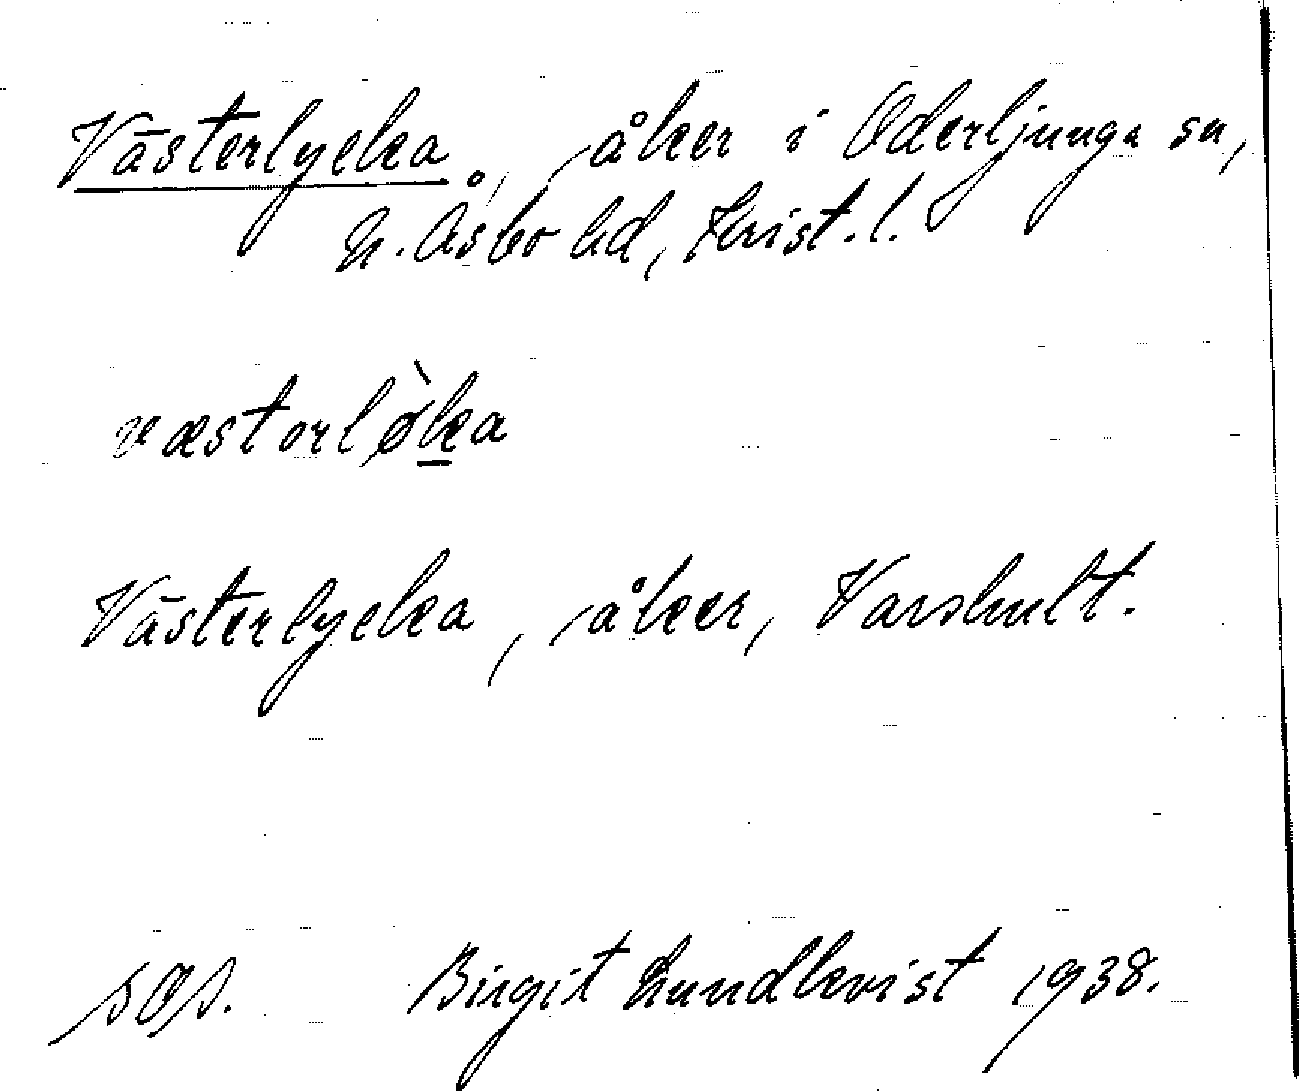 Västerlycka, åker i Oderljunga sn,
N. Åsbo hd, Krist. l.
væstorlø̀ka
Västerlycka, åker, Varshult.
sOs. Birgit Lundkvist 1938.